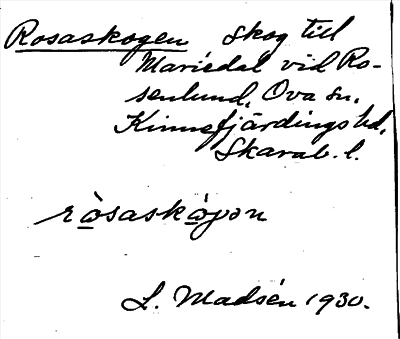 Rosaskogen Skog till
Mariedal vid Ro-
senlund, Ova sn,
Kinnefjärdings hd,
Skarab. l.
ròsaskógən
L. Madsén 1930.